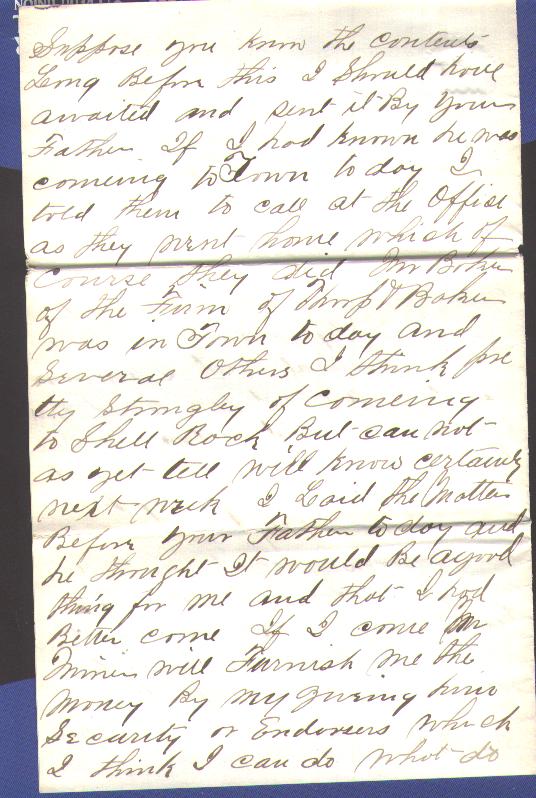 Suppose you know the contents
Long Before this I Should have
awaited and sent it By your
Father If I had known he was
comeing to Town to day I
told them to call at the Office
as they went home which of
course they did Mr Baker
of the Firm of & Baker
was in Town to day and
Several Others I think pre
tty Strongley of Comeing
to Shell Rock But can not
as yet tell will know certainly
next week I Laid the Matter
Before your Father to day and
he thought It would Be a good
thing for me and that I had
Better come If I come Mr
will Furnish me the
money By my giveing him
Security or Endorsers which
I think I can do what do